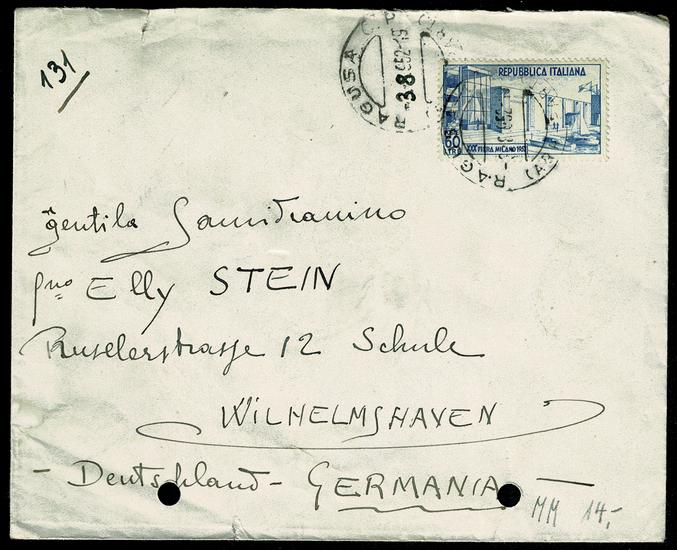 131
RAGUSA C.P.
-3.8.952-15
REPUBBLICA ITALIANA
60
XXX FIERA MILANO 1952
RAGUSA
gentila Samideanino
fno Elly STEIN
Ruselerstrasse 12 Schule
WILHELMSHAVEN
- Deutschland - GERMANIA -
MM 14,-